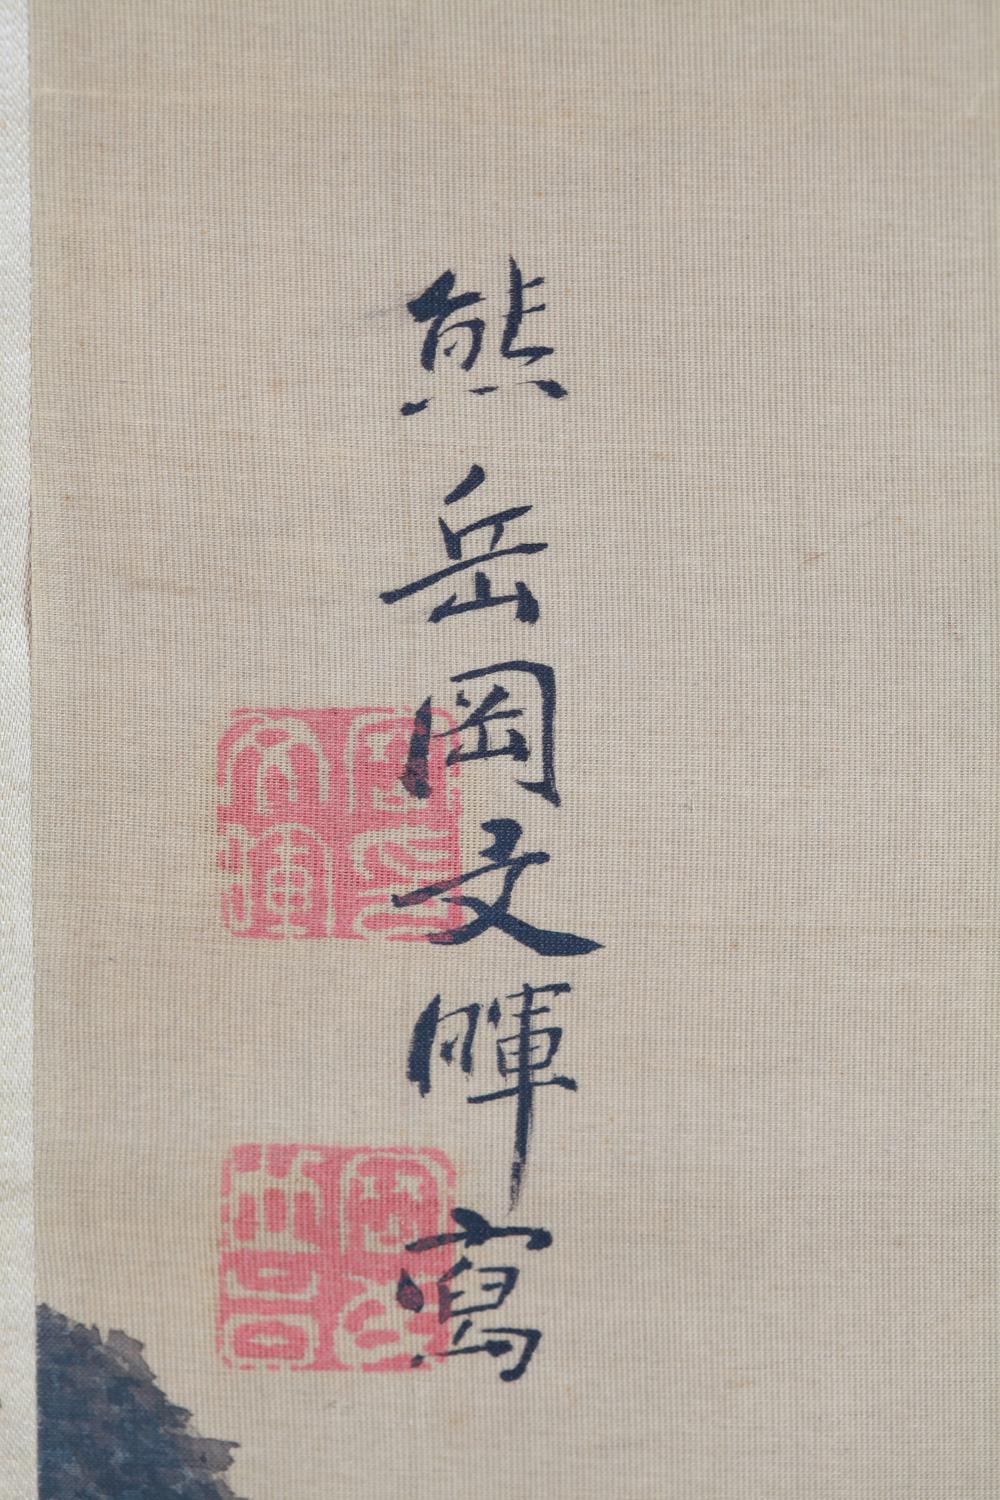 熊岳岡文暉寫